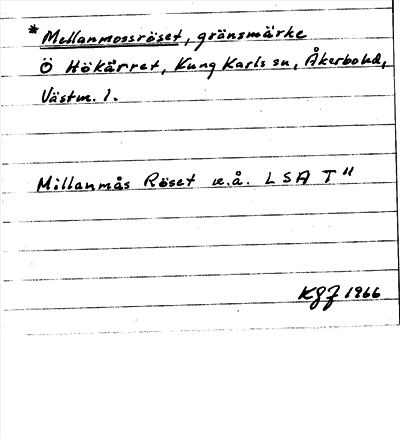 * Mellanmossröset, gränsmärke
Ö Hökärret, Kung Karls sn, Åkerbo hd,
Västm. l.
Millanmås Röset u.å. LSA T"
KGJ 1966